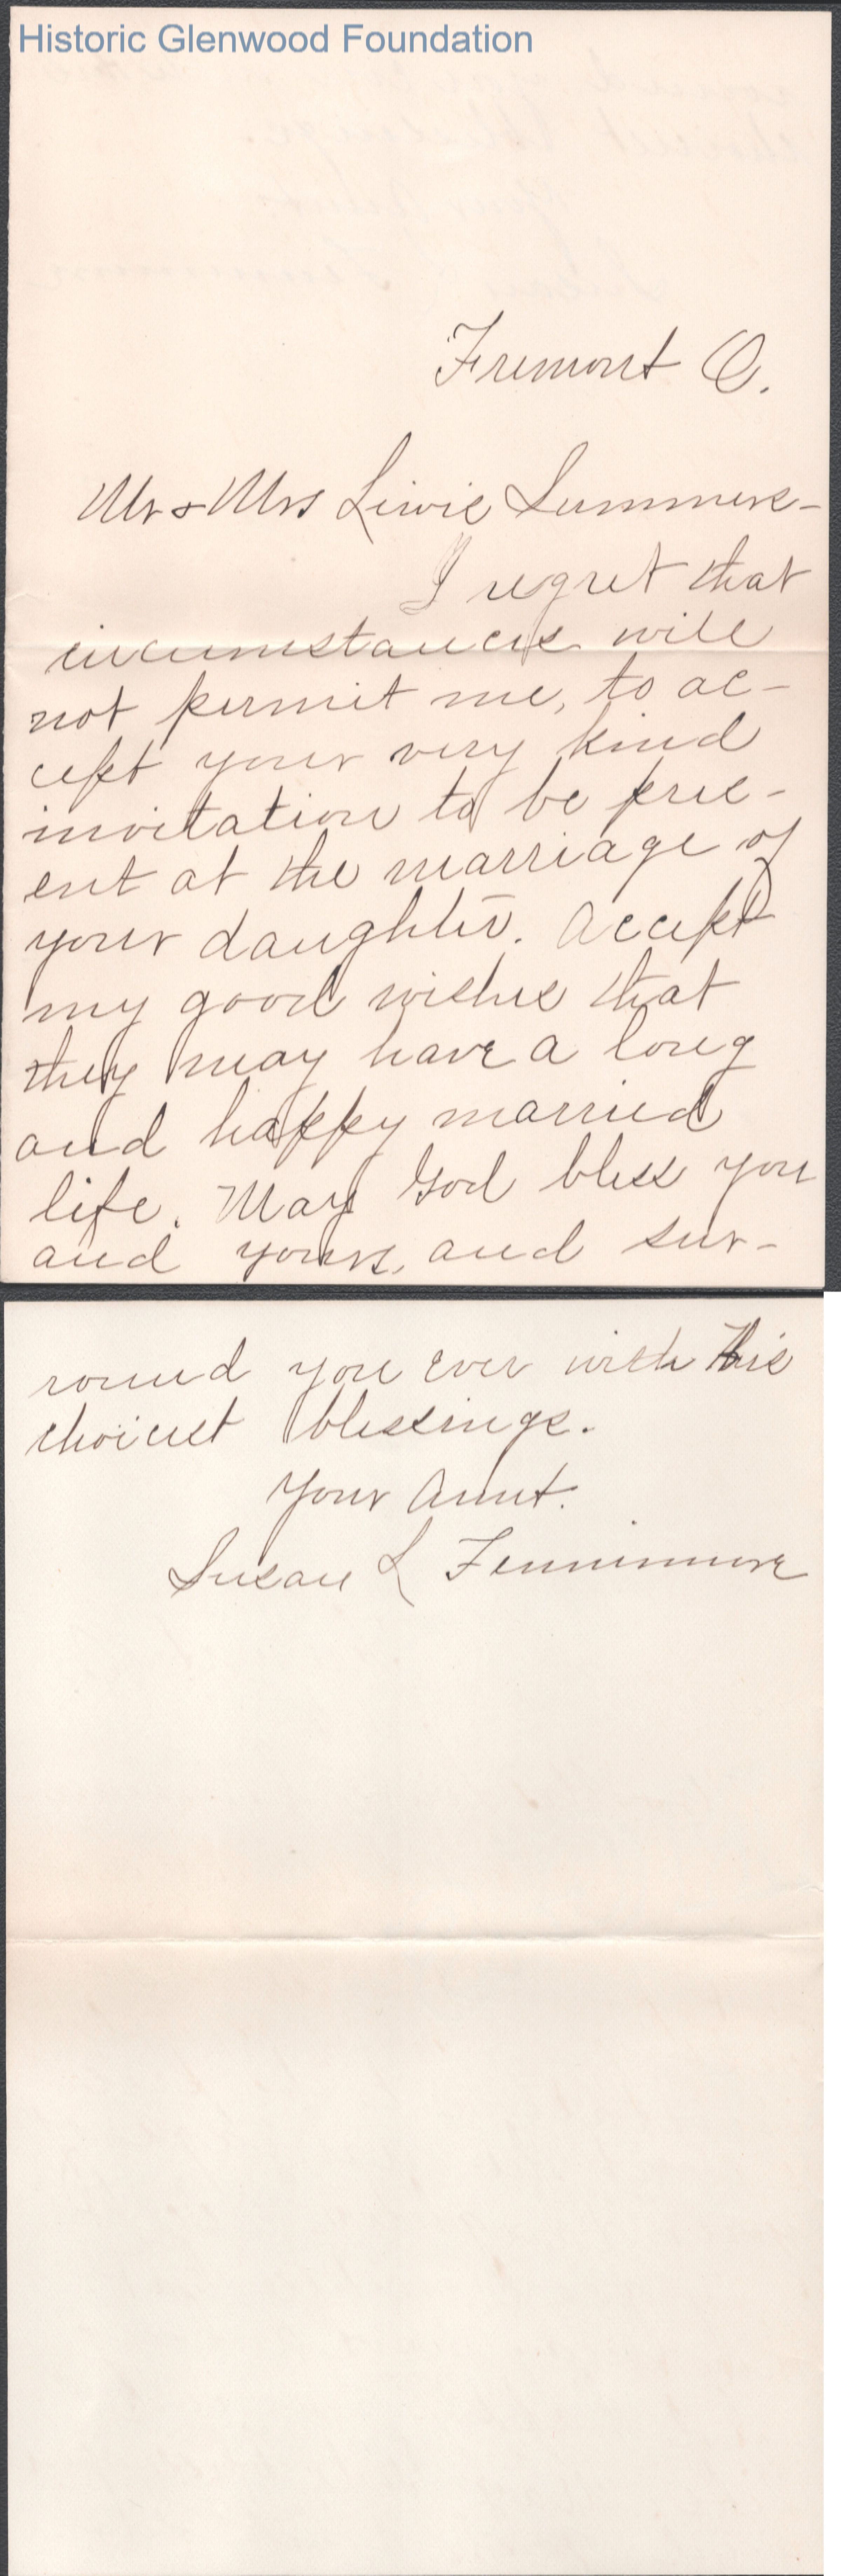 Historic Glenwood Foundation
Fremont O.
Mr & Mrs Lewis Summers -
I regret that
circumstances will
not permit me, to ac-
cept your very kind
invitation to be pres-
ent at the marriage of
your daughter. Accept
my good wishes that
they may have a long
and happy married
life. May God bless you
and yours, and sur-
round you ever with His
choicest blessings.
Your Aunt.
Susan L Fennimore